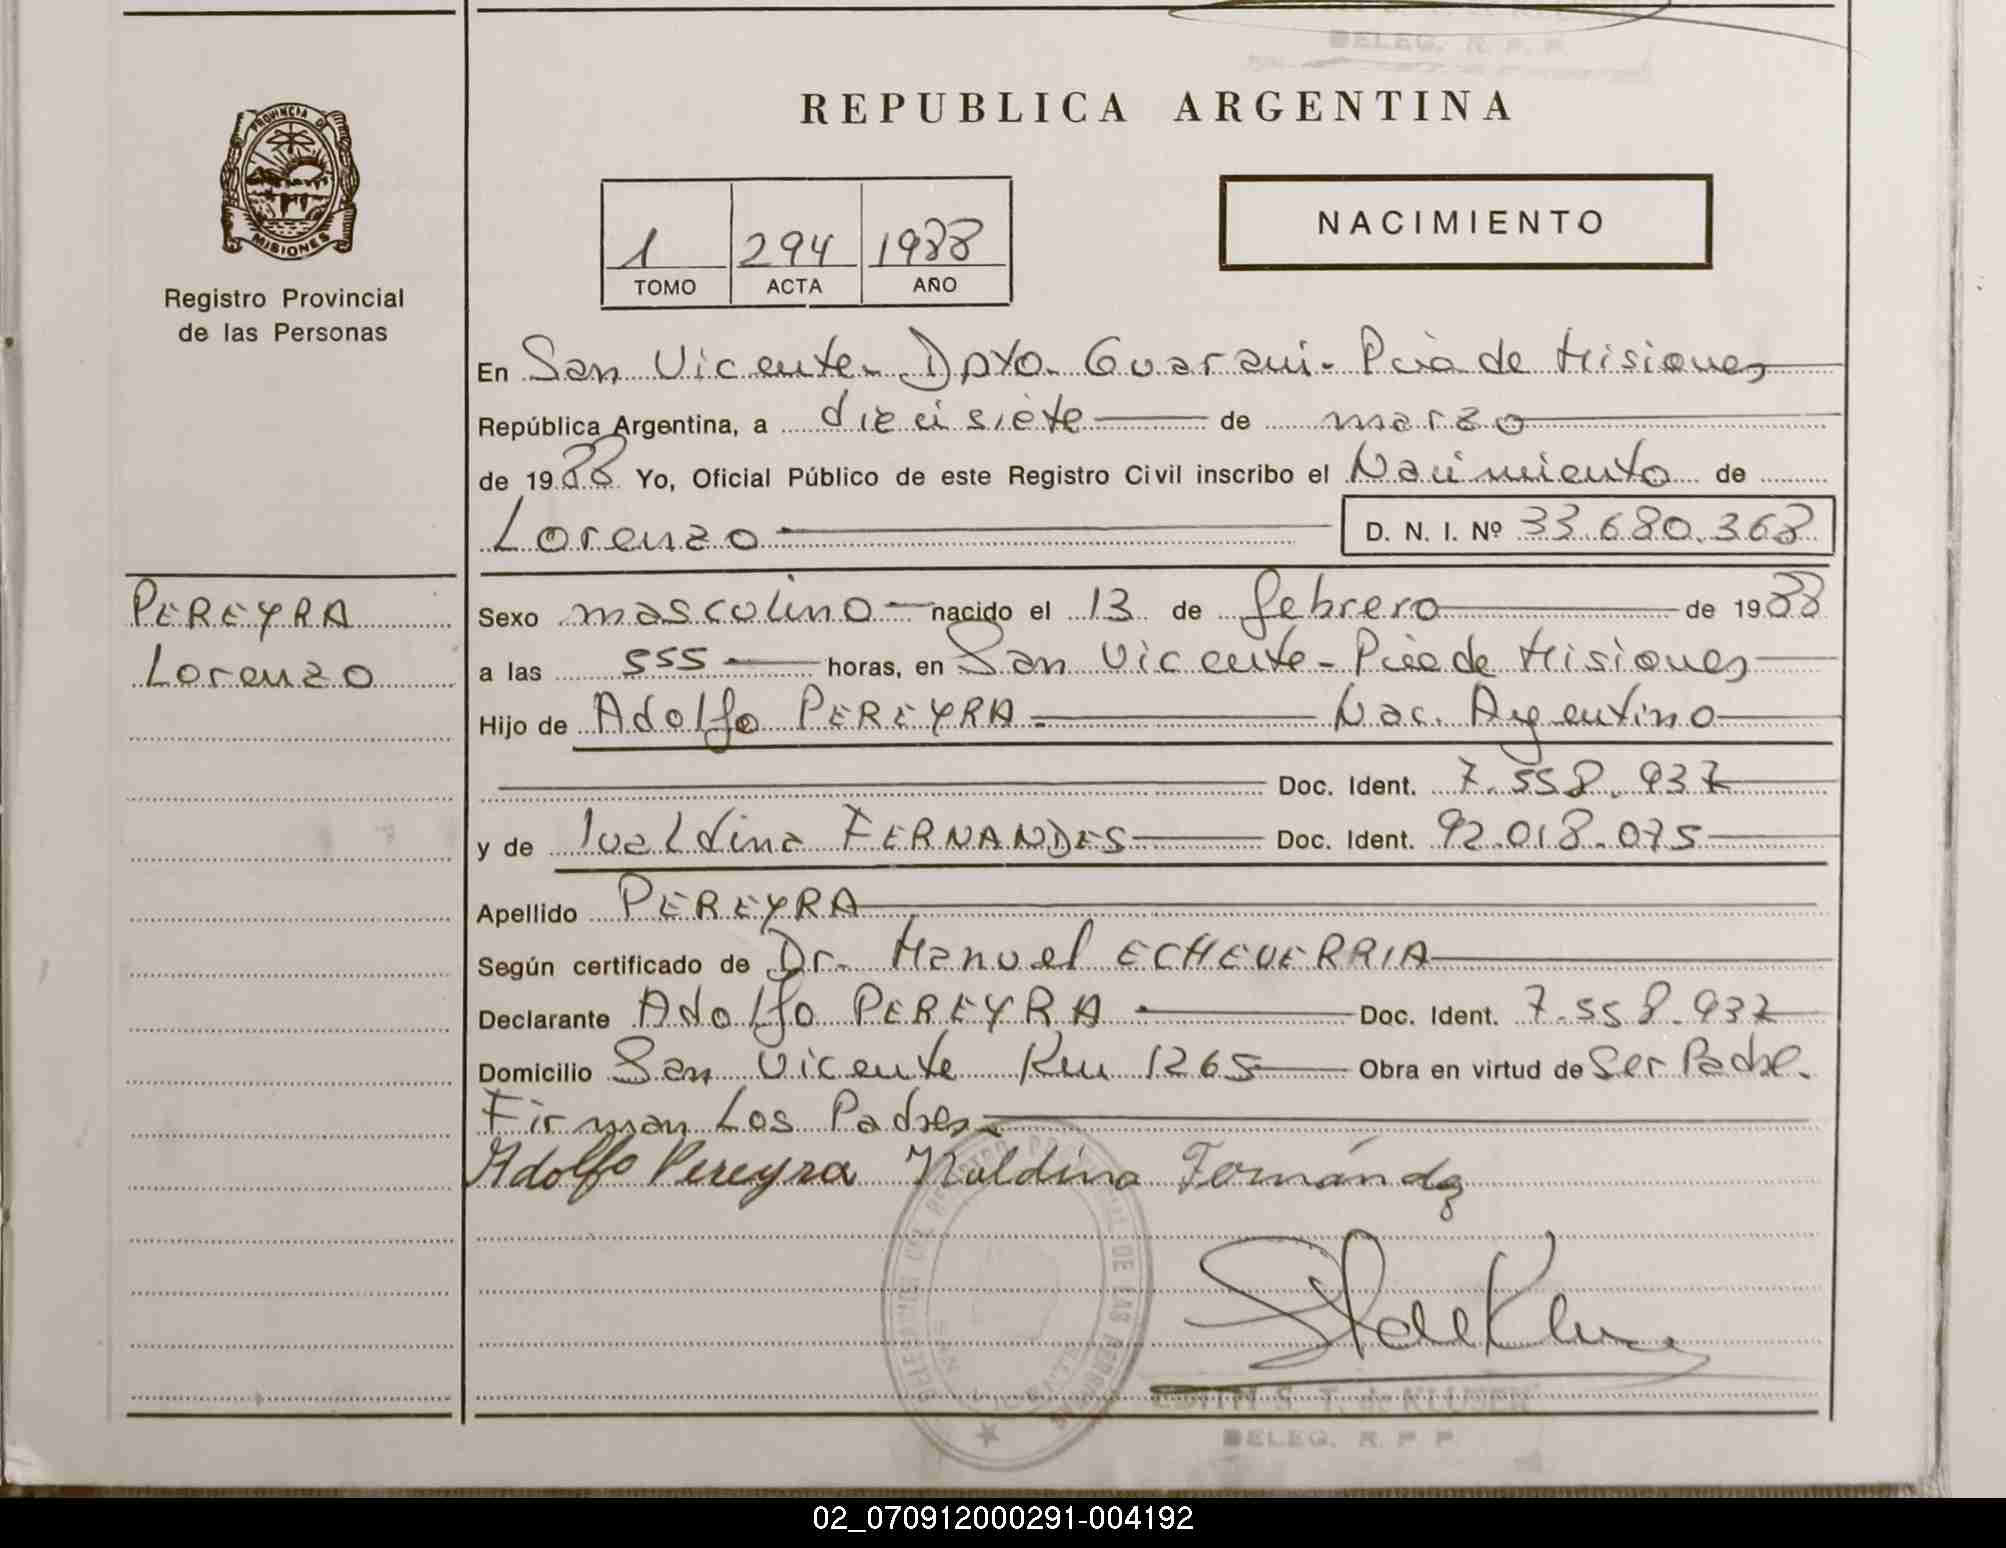 REPUBLICA ARGENTINA
PROVINCIA DE
MISIONES
Registro Provincial
de las Personas
1 294 1988
TOMO ACTA AÑO
NACIMIENTO
En San Vicente - Dpto. Guarani - Pcia de Misiones
República Argentina, a diecisiete de marzo
de 1988 Yo, Oficial Público de este Registro Civil inscribo el Nacimiento de
Lorenzo D. N. I. Nº 33.680.368
PEREYRA
Lorenzo
Sexo mascolino nacido el 13 de febrero de 1988
a las 555 horas, en San Vicente - Pcia de Misiones
Hijo de Adolfo PEREYRA Nac. Argentino
Doc. Ident. 7.558.937
y de Ivaldina FERNANDES Doc. Ident. 92.018.075
Apellido PEREYRA
Según certificado de Dr. Manuel ECHEVERRIA
Declarante Adolfo PEREYRA Doc. Ident. 7.558.937
Domicilio San Vicente Km 1265 Obra en virtud de Ser Padre.
Firman Los Padres
Adolfo Pereyra Ivaldina Fernández
DELEG. R. P. P.
02_070912000291-004192